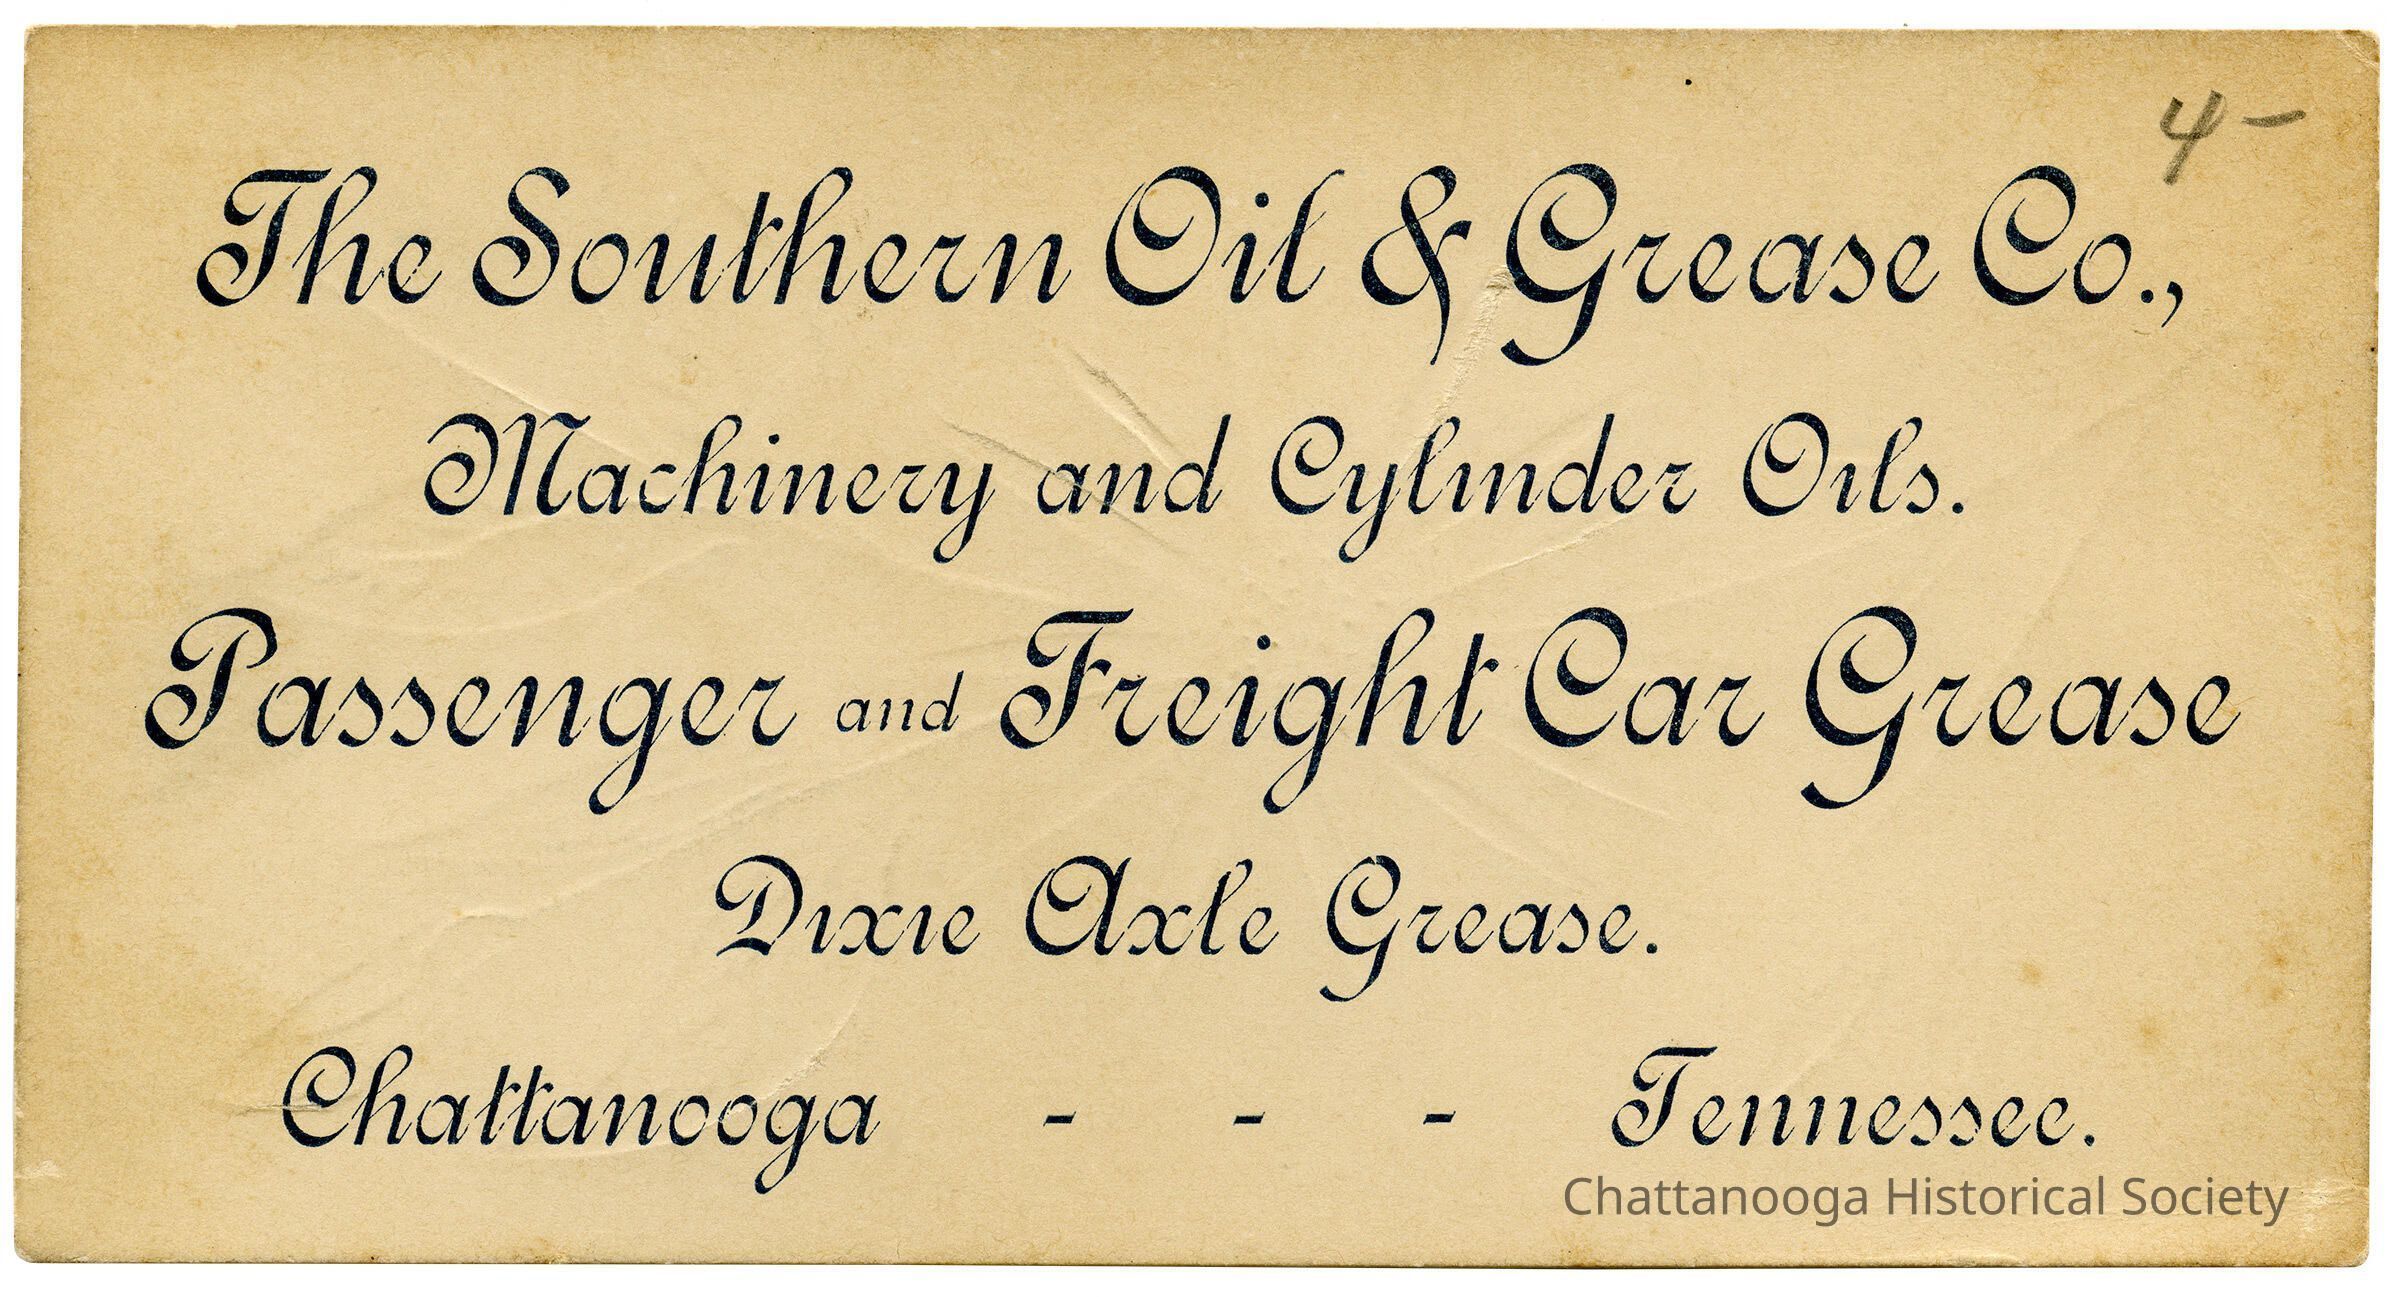 4-
The Southern Oil & Grease Co.,
Machinery and Cylinder Oils.
Passenger and Freight Car Grease
Dixie Axle Grease.
Chattanooga - - - Tennessee.
Chattanooga Historical Society